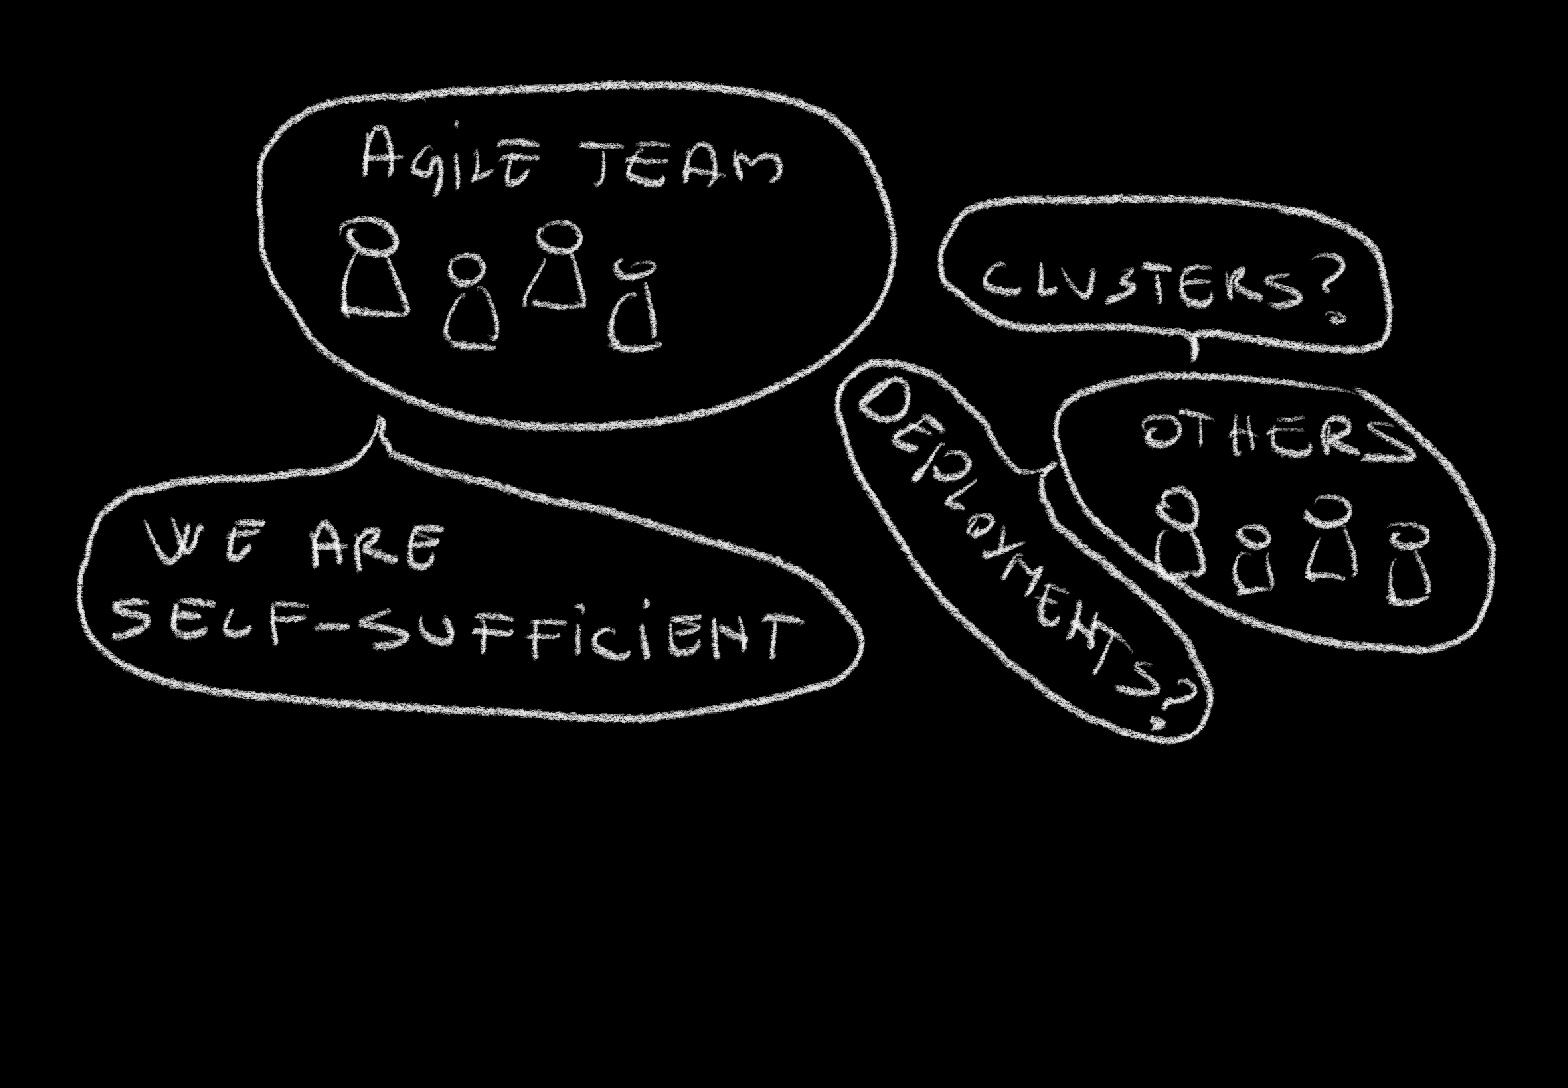 AGILE TEAM
WE ARE
SELF-SUFFICIENT
CLUSTERS?
OTHERS
DEPLOYMENTS?